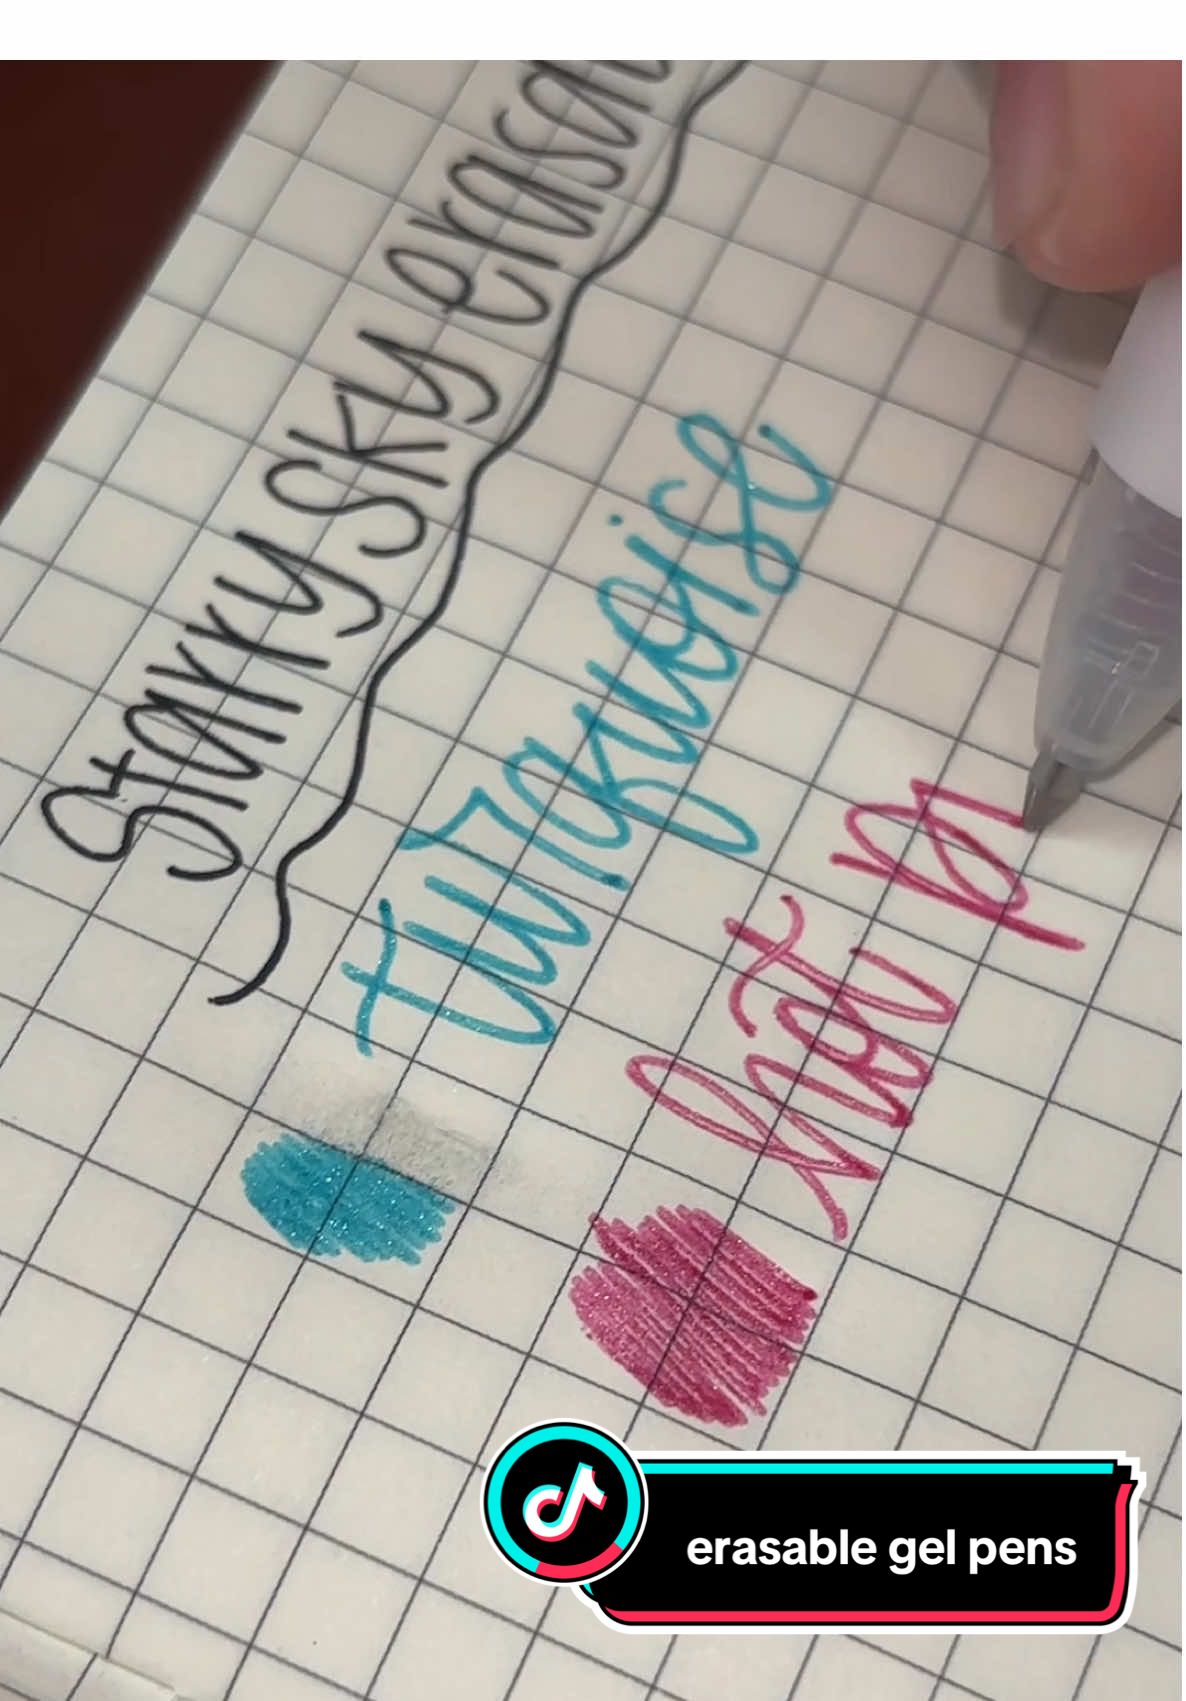 Starry Sky erasa
turquoise
hot p
erasable gel pens